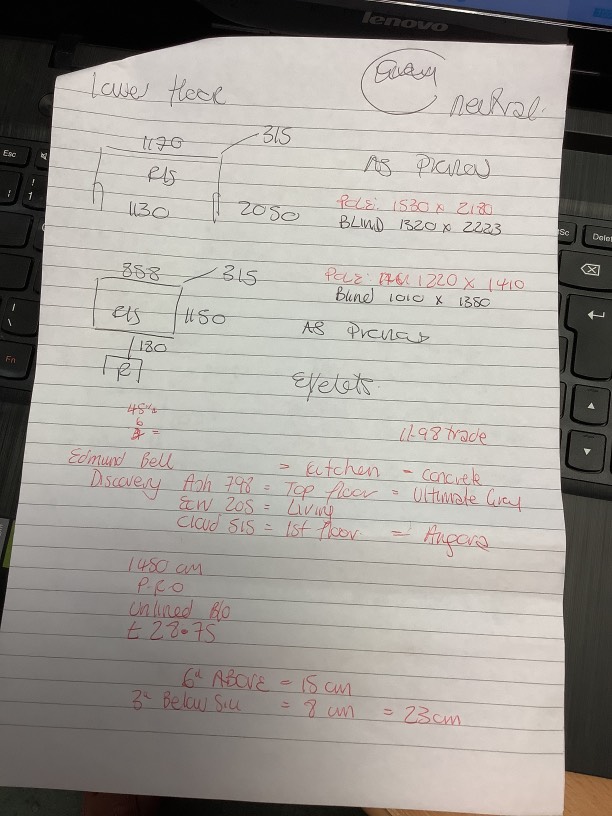 lenovo
Lower floor
neutral.
1170
315
R/S
1130
2050
As Picture
POLE: 1530 x 2180
BLIND 1320 x 2223
858
315
R/S
1150
180
R
POLE: 1220 x 1410
Blind 1010 x 1380
As Picture
Eyelets
45%
6
11.98 trade
Edmund Bell = Kitchen - Concrete
Discovery Ash 798 = Top floor = Ultimate Gray
Ecru 205 = Living
Cloud 515 = 1st floor. = Angora
1450 cm
P-R-O
Unlined B/O
£28.75
6" ABOVE = 15 cm
3" Below Sill = 8 cm = 23cm
Esc
Fn
Delete